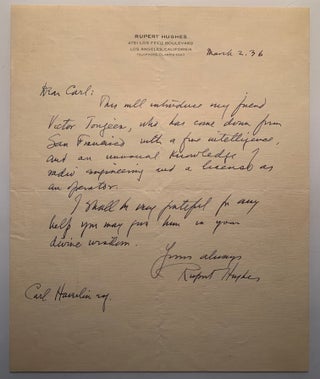 RUPERT HUGHES
4751 LOS FELIZ BOULEVARD
LOS ANGELES, CALIFORNIA
March 2. '36
Dear Carl:
This will introduce my friend
Victor, who has come down from
San Francisco with a fine intelligence,
and an unusual knowledge of
radio engineering and a license as
an operator.
I shall be very grateful for any
help you may give him in your
divine wisdom.
Yours always
Rupert Hughes
Carl Haverlin esq